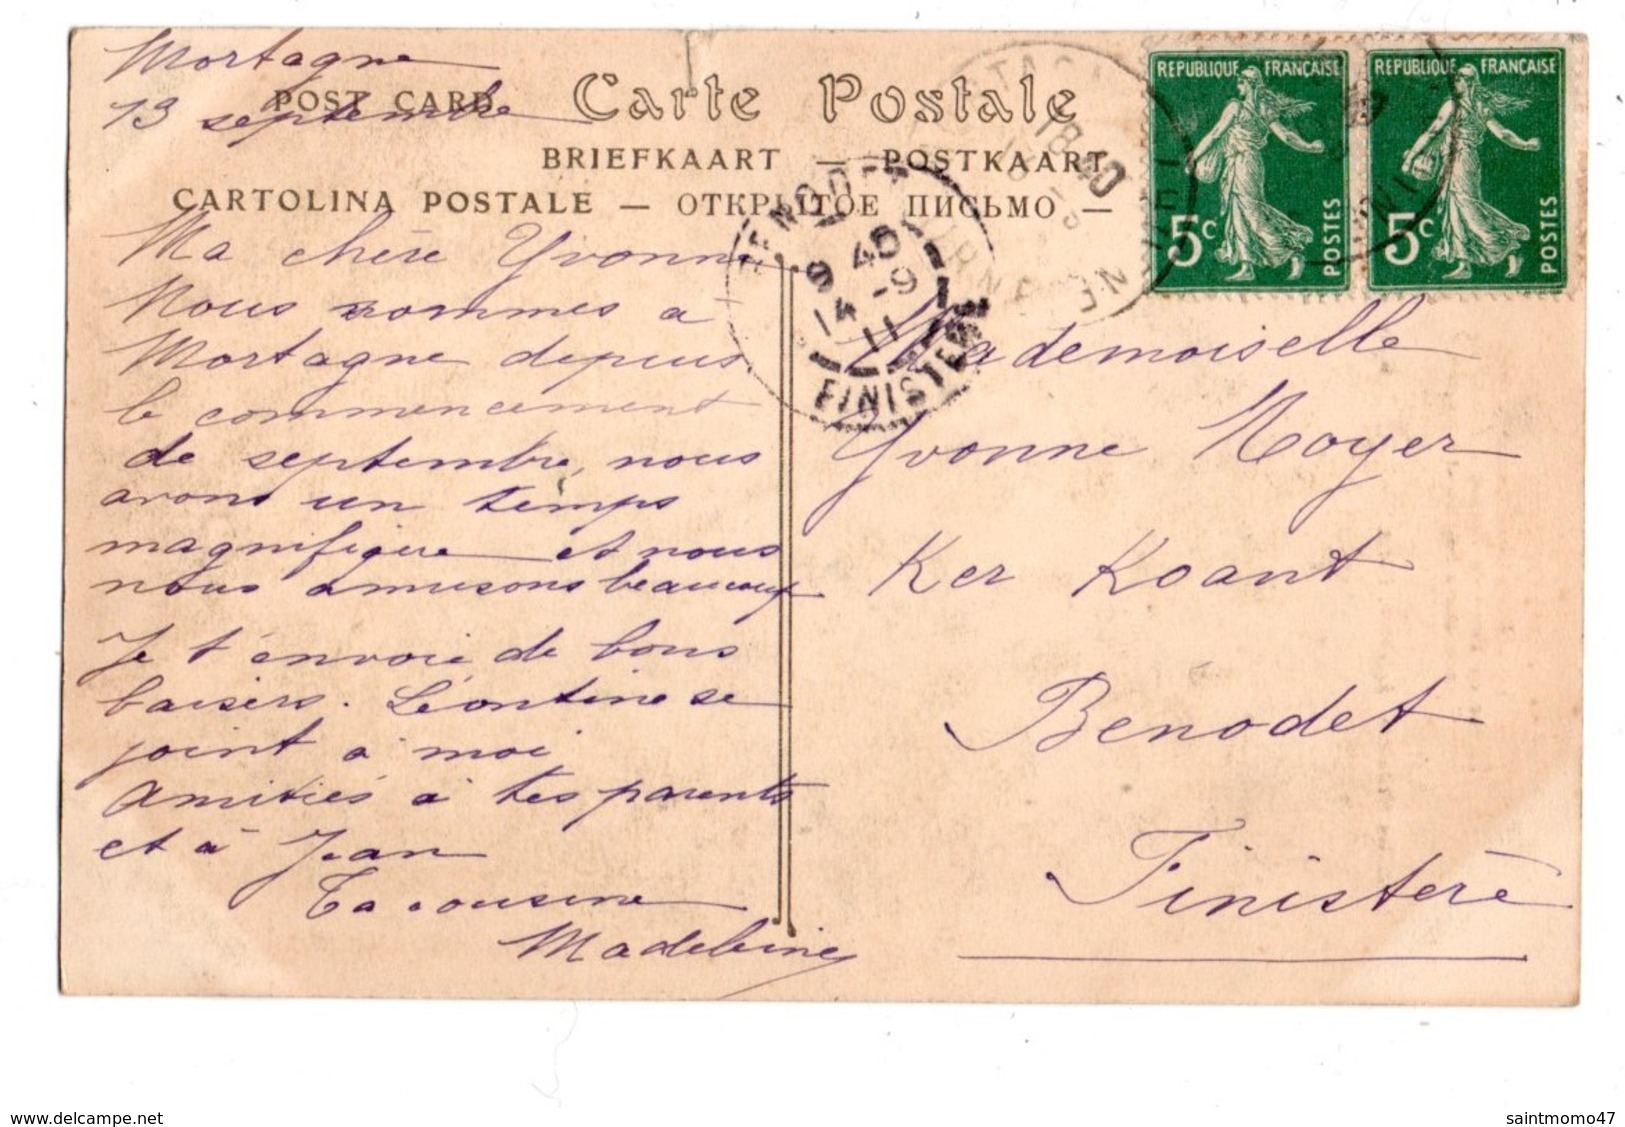 Mortagne
13 septembre
POST CARD
Carte Postale
BRIEFKAART — POSTKAART
CARTOLINA POSTALE — ОТКРЫТОЕ ПИСЬМО —
Ma chère Yvonne
Nous sommes a
Mortagne depuis
le commencement
de septembre, nous
avons un temps
magnifique et nous
nous amusons beaucoup
Je t'envoie de bons
baisers. Léontine se
joint à moi
Amitiés à tes parents
et à Jean
Ta cousine
Madeleine
REPUBLIQUE FRANÇAISE
5c
POSTES
REPUBLIQUE FRANÇAISE
5c
POSTES
BENODET
9 40
14 -9
11
FINISTERE
18 40
Mademoiselle
Yvonne Noyer
Ker Koant
Benodet
Finistère
www.delcampe.net
saintmomo47